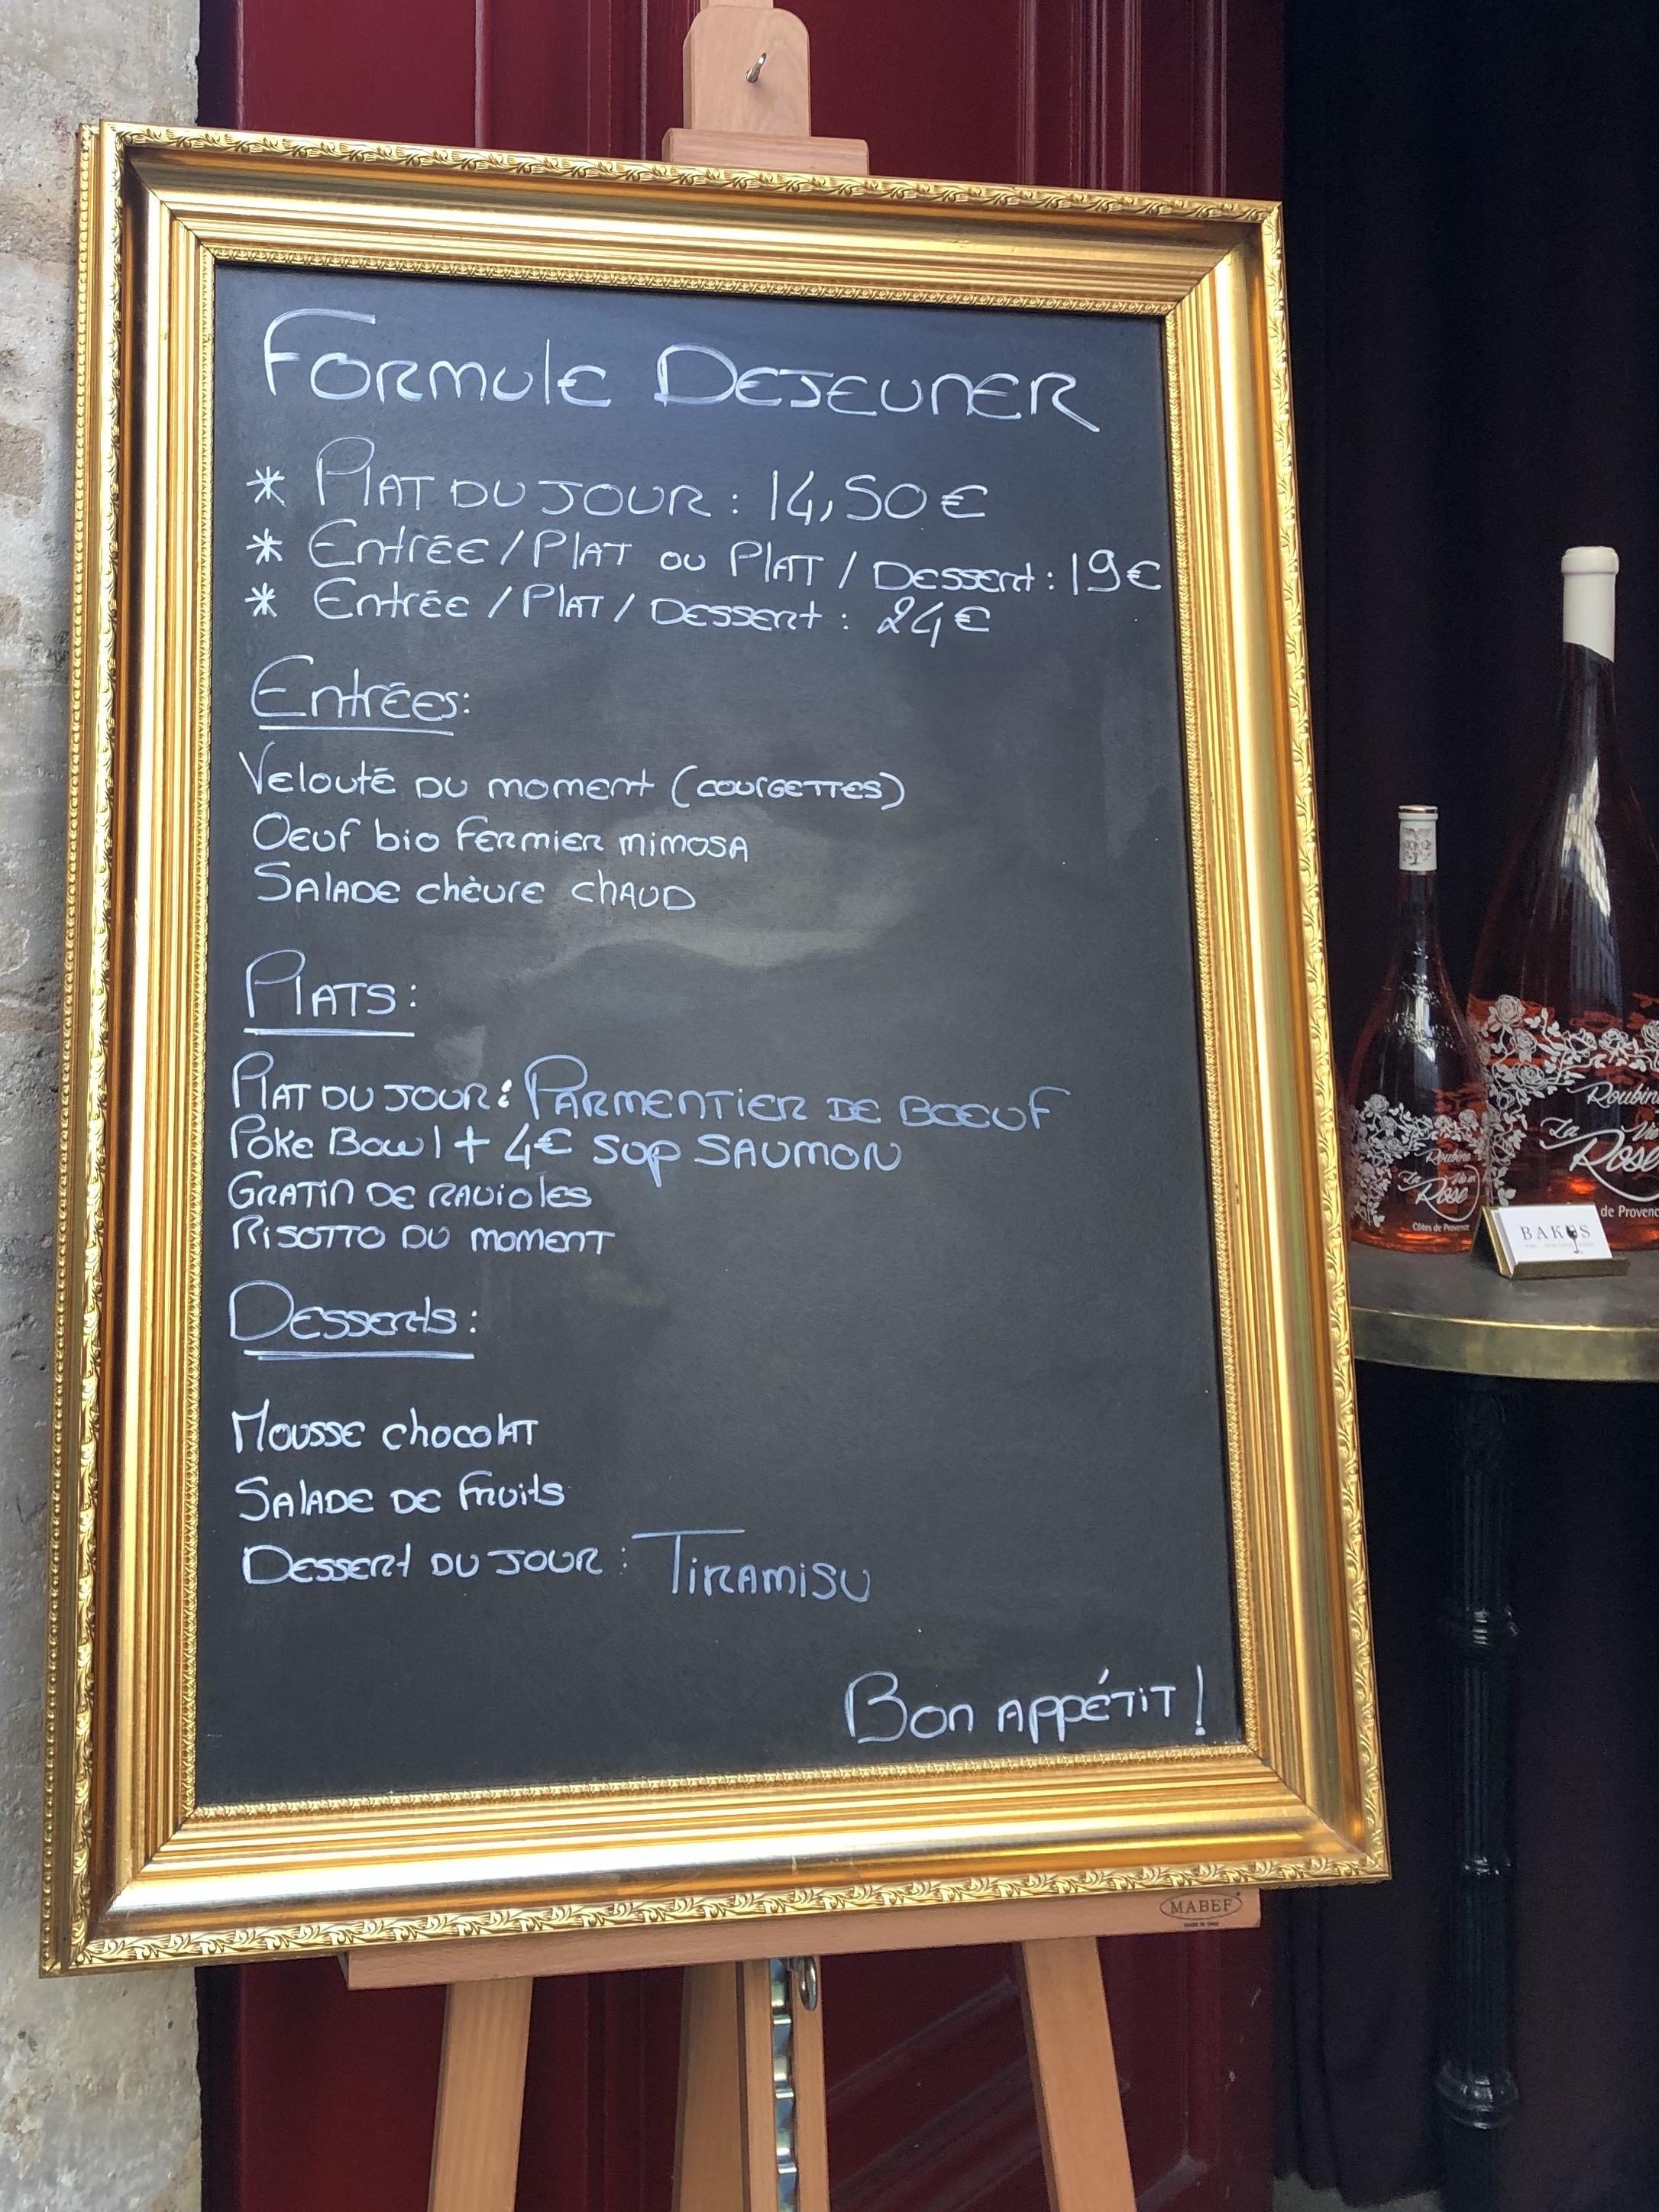 FORMULE DEJEUNER
* PLAT DU JOUR : 14,50 €
* Entrée / PLAT ou PLAT / Dessert : 19€
* Entrée / PLAT / Dessert : 24€
Entrées:
Velouté du moment (courgettes)
Oeuf bio fermier mimosa
Salade chèvre chaud
PLATS:
Plat du jour : Parmentier de boeuf
Poke Bowl + 4€ sup saumon
Gratin de ravioles
Risotto du moment
Desserts :
Mousse chocolat
Salade de fruits
Dessert du jour : Tiramisu
Bon appétit !
MABEF
Roubine
La Vie en
Rose
Côtes de Provence
Roubine
La Vie
Rose
de Provence
BAKUS